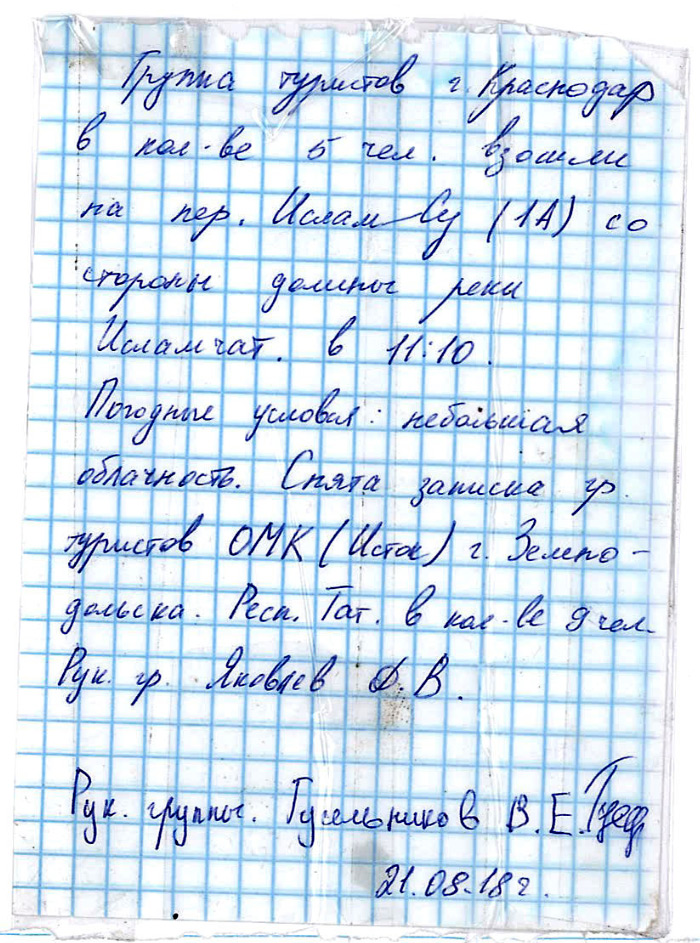 Группа туристов г. Краснодар
в кол-ве 5 чел. взошли
на пер. Ислам Су (1А) со
стороны долины реки
Исламчат. в 11:10.
Погодные условя: небольшая
облачность. Снята записка гр.
туристов ОМК (Исток) г. Зелено-
дольска. Респ. Тат. в кол-ве 9 чел.
Рук. гр. Яковлев Д.В.
Рук. группы. Гусельников В.Е.
21.08.18 г.